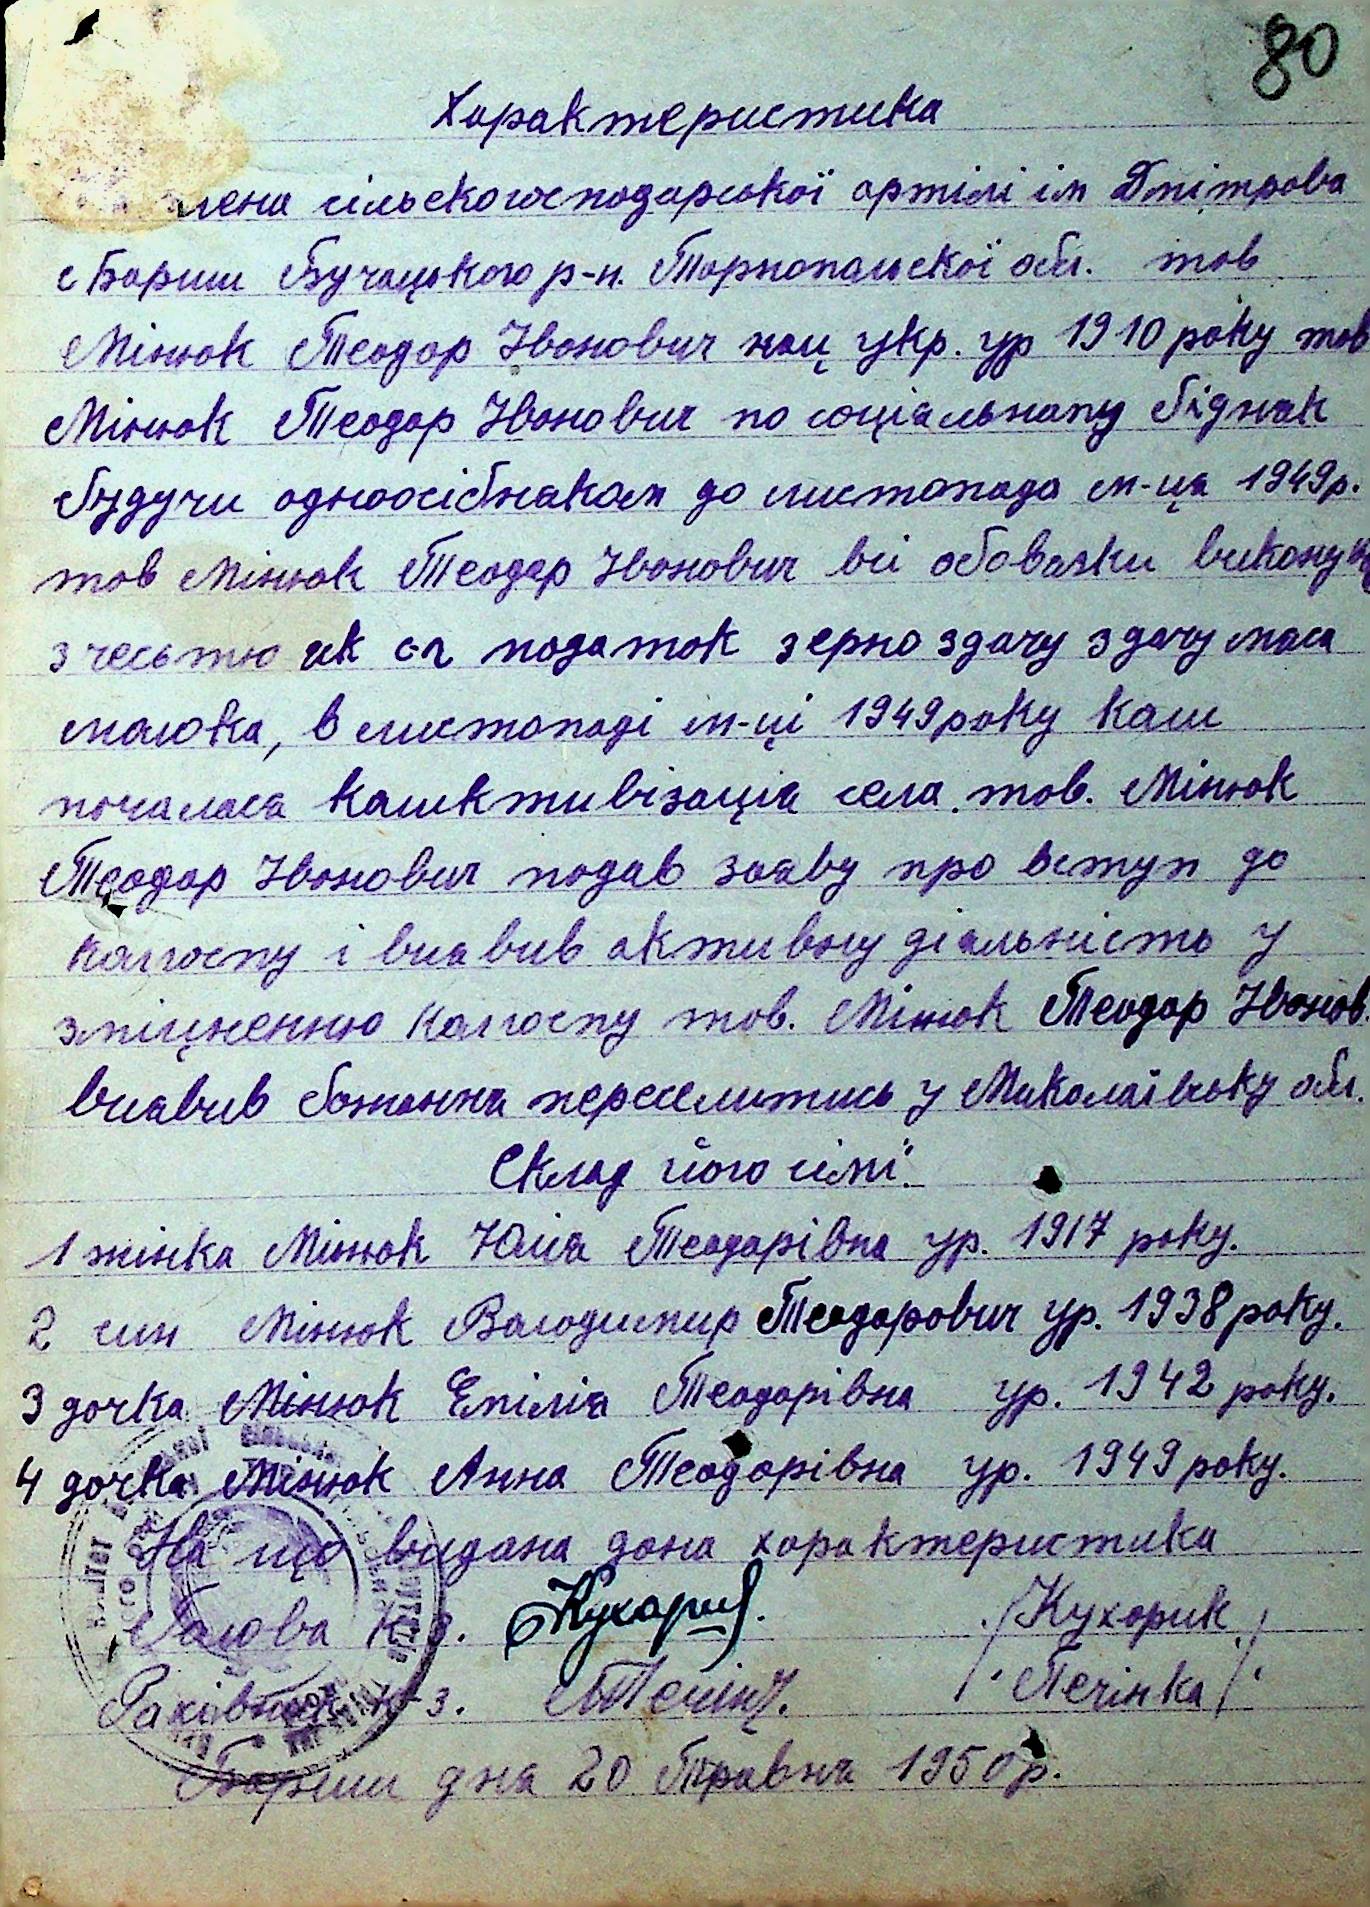 80
Характеристика
члена сільскогосподарської артілі ім Дмітрова
с Бариш Бучацького р-н. Тарнопольскої обл. тов
Мінюк Теодор Іванович нац укр. ур 1910 року тов
Мінюк Теодор Іванович по соціальному бідняк
будучи одноосібнаком до листопада м-ця 1949р.
тов Мінюк Теодор Іванович всі обовязки викону
з честью як с-г податок зерно здачу здачу мяса
молока, в листопаді м-ці 1949 року коли
почалася колективізація села тов. Мінюк
Теодор Іванович подав заяву про вступ до
колгоспу і виявив активну діяльність у
зміцненню колгоспу тов. Мінюк Теодор Іванов.
виявив бажання переселитись у Миколаївську обл.
Склад його сімї:
1 жінка Мінюк Юлія Теодорівна ур. 1917 року.
2 син Мінюк Володимир Теодорович ур. 1938 року.
3 дочка Мінюк Емілія Теодорівна ур. 1942 року.
4 дочка Мінюк Анна Теодорівна ур. 1949 року.
На що видана дана характеристика
Голова К-з. Кухарик. /Кухарик/
Раківник к-з. /Печінка/
Бариш дня 20 Травня 1950р.